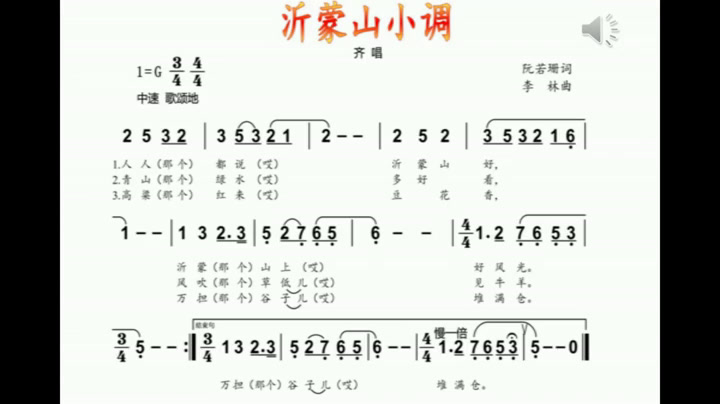 沂蒙山小调
齐 唱
1=G 3/4 4/4
阮若珊词
中速 歌颂地
李 林曲
2 5 3 2 | 3 5 3 2 1 | 2 - - | 2 5 2 | 3 5 3 2 1 6 |
1.人 人（那 个） 都 说（哎） 沂 蒙 山 好，
2.青 山（那 个） 绿 水（哎） 多 好 看，
3.高 粱（那 个） 红 来（哎） 豆 花 香，
1 - - | 1 3 2.3 | 5 2 7 6 5 | 6 - - | 4/4 1.2 7 6 5 3 |
沂 蒙（那 个）山 上（哎） 好 风 光。
风 吹（那 个）草 低 儿（哎） 见 牛 羊。
万 担（那 个）谷 子 儿（哎） 堆 满 仓。
结束句
慢一倍
3/4 5 - - :‖ 3/4 1 3 2.3 | 5 2 7 6 5 | 6 - - | 4/4 1.2 7 6 5 3 | 5 - - 0 ‖
万担（那个）谷 子 儿（哎） 堆 满 仓。